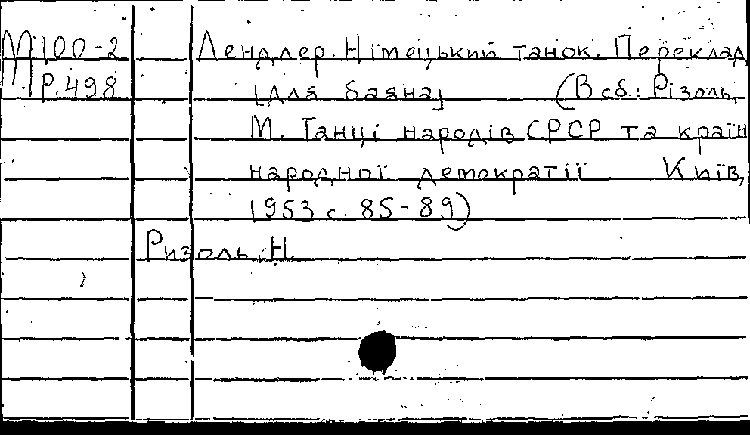 М100-2 Лендлер. Німецький танок. Переклад
Р.498 [для баяна] (В сб: Різоль,
М. Танці народів СРСР та країн
народної демократії Київ,
1953 с. 85-89)
Ризоль, Н.